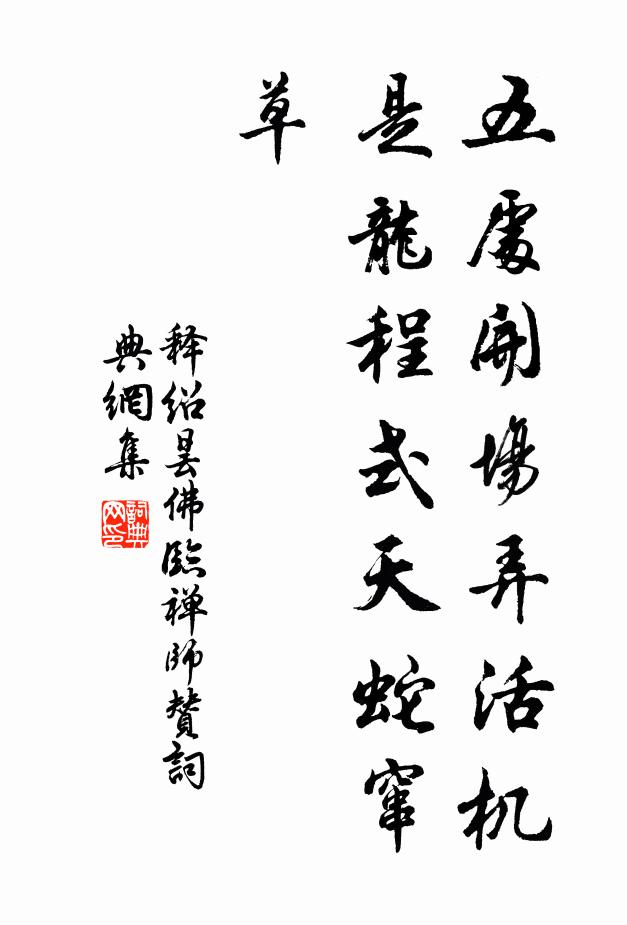 五處開場弄活机
是龍程式天蛇窜
草
释绍昙佛臨禅師賛詞
典網集
詞典
网印